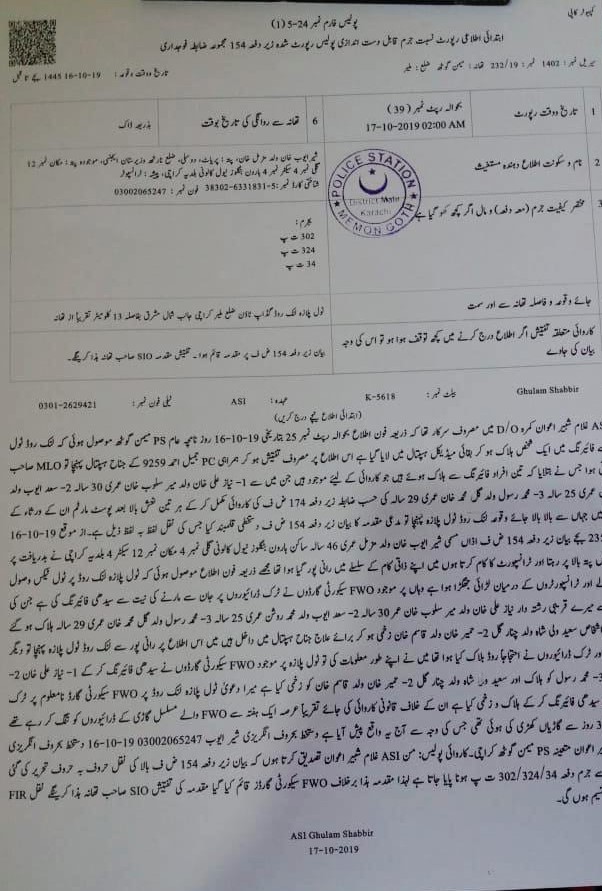 کمپیوٹر کاپی
پولیس فارم نمبر 24-5 (1)
ابتدائی اطلاعی رپورٹ نسبت جرم قابل دست اندازی پولیس رپورٹ شدہ زیر دفعہ 154 مجموعہ ضابطہ فوجداری
سیریل نمبر : 1402 نمبر : 232/19 تھانہ : میمن گوٹھ ضلع : ملیر تاریخ و وقت وقوعہ : 19-10-16 1445 بجے
1 تاریخ و وقت رپورٹ بحوالہ رپٹ نمبر ( 39 ) 17-10-2019 02:00 AM 6 تھانہ سے روانگی کی تاریخ بوقت بذریعہ ڈاک
2 نام و سکونت اطلاع دہندہ مستغیث
شیر ایوب خان ولد مزمل خان، پتہ : ضلع نارتھ وزیرستان ایجنسی، موجودہ پتہ : مکان نمبر 12
گلی نمبر 4 سیکٹر 4 کالونی بلدیہ کراچی، پیشہ : ٹرانسپورٹر
شناختی کارڈ نمبر : 38302-6331831-5 فون نمبر : 03002065247
POLICE STATION
District Malir
Karachi
MEMON GOTH
3 مختصر کیفیت جرم (معہ دفعہ) و مال اگر کچھ کھو گیا ہے
جرم :
302 ت پ
324 ت پ
34 ت پ
جائے وقوعہ و فاصلہ تھانہ سے اور سمت ٹول پلازہ لنک روڈ گڈاپ ٹاؤن ضلع ملیر کراچی جانب شمال مشرق بفاصلہ 13 کلومیٹر تقریباً از تھانہ
کاروائی متعلقہ تفتیش اگر اطلاع درج کرنے میں کچھ توقف ہوا ہو تو اس کی وجہ
بیان کی جاوے
بیان زیر دفعہ 154 ض ف پر مقدمہ قائم ہوا۔ تفتیش مقدمہ SIO صاحب تھانہ ہذا کرینگے۔
Ghulam Shabbir بیلٹ نمبر : K-5618 عہدہ : ASI ٹیلی فون نمبر : 0301-2629421
(ابتدائی اطلاع نیچے درج کریں)
ASI غلام شبیر اعوان کمرہ D/O میں مصروف سرکار تھا کہ ذریعہ فون اطلاع بحوالہ رپٹ نمبر 25 بتاریخی 19-10-16 روز نامچہ عام PS میمن گوٹھ موصول ہوئی کہ لنک روڈ ٹول
فائرنگ میں ایک شخص ہلاک ہو کر بقائی میڈیکل ہسپتال میں لایا گیا ہے اس اطلاع پر مصروف تفتیش ہو کر ہمراہی PC جمیل احمد 9259 کے جناح ہسپتال پہنچا تو MLO صاحب
ہوا جس نے بتلایا کہ تین افراد فائرنگ سے ہلاک ہوئے ہیں جو کاروائی کے لیئے موجود ہیں جن میں سے 1- نیاز علی خان ولد میر سلوب خان عمری 30 سالہ 2- سعد ایوب ولد
عمری 25 سالہ 3- محمد رسول ولد گل محمد خان عمری 29 سالہ کی حسب ضابطہ زیر دفعہ 174 ض ف کی کاروائی مکمل کر کے ہر تین نعش بالا بعد پوسٹ مارٹم ان کے ورثاء کے
میں جہاں سے بالا بالا جائے وقوعہ لنک روڈ ٹول پلازہ پہنچا تو مدعی مقدمہ کا بیان زیر دفعہ 154 ض ف دستخطی قلمبند کیا جس کی نقل لفظ بہ لفظ ذیل ہے۔ از موقع 19-10-16
بجے بیان زیر دفعہ 154 ض ف اذاں مسمی شیر ایوب خان ولد مزمل عمری 46 سالہ ساکن کالونی گلی نمبر 4 مکان نمبر 12 سیکٹر 4 بلدیہ کراچی نے بدریافت پر
پتہ بالا پر رہتا اور ٹرانسپورٹ کا کام کرتا ہوں میں اپنے ذاتی کام کے سلسلے میں رانی پور گیا ہوا تھا مجھے ذریعہ فون اطلاع موصول ہوئی کہ ٹول پلازہ لنک روڈ پر ٹول ٹیکس وصول
اور ٹرانسپورٹروں کے درمیان لڑائی جھگڑا ہوا ہے وہاں پر موجود FWO سیکورٹی گارڈوں نے ٹرک ڈرائیوروں پر جان سے مارنے کی نیت سے سیدھی فائرنگ کی ہے جن کی
سے میرے قریبی رشتہ دار نیاز علی خان ولد میر سلوب خان عمر 30 سالہ 2- سعد ایوب ولد محمد روشن عمری 25 سالہ 3- محمد رسول ولد گل محمد خان عمری 29 سالہ ہلاک ہو گئے
اشخاص سعید ولی شاہ ولد چنار گل 2- عمیر خان ولد قاسم خان زخمی ہو کر برائے علاج جناح ہسپتال میں داخل ہیں میں اس اطلاع پر رانی پور سے لنک روڈ ٹول پلازہ پہنچا تو دیگر
اور ٹرک ڈرائیوروں نے احتجاجاً روڈ بلاک کیا ہوا تھا میں نے اپنے طور معلومات کی تو ٹول پلازہ پر موجود FWO سیکورٹی گارڈوں نے سیدھی فائرنگ کر کے 1- نیاز علی خان 2-
3- محمد رسول کو ہلاک اور سعید ولی شاہ ولد چنار گل 2- عمیر خان ولد قاسم خان کو زخمی کیا ہے میرا دعویٰ ٹول پلازہ لنک روڈ پر FWO سیکورٹی گارڈ نامعلوم پر ٹرک
سیدھی فائرنگ کر کے ہلاک و زخمی کیا ہے ان کے خلاف قانونی کاروائی کی جائے تقریباً عرصہ ایک ہفتہ سے FWO والے مسلسل گاڑی کے ڈرائیوروں کو تنگ کر رہے تھے
3 روز سے گاڑیاں کھڑی کی ہوئی تھی جس کی وجہ سے آج یہ واقع پیش آیا ہے دستخط بحروف انگریزی شیر ایوب 03002065247 19-10-16 دستخط بحروف انگریزی
اعوان متعینہ PS میمن گوٹھ کراچی۔ کاروائی پولیس: من ASI غلام شبیر اعوان تصدیق کرتا ہوں کہ بیان زیر دفعہ 154 ض ف بالا کی نقل حروف بہ حروف تحریر کی گئی
سے جرم دفعہ 302/324/34 ت پ ہونا پایا جاتا ہے لہذا مقدمہ ہذا برخلاف FWO سیکورٹی گارڈز قائم کیا گیا مقدمہ کی تفتیش SIO صاحب تھانہ ہذا کرینگے نقل FIR
ہوں گی۔
ASI Ghulam Shabbir
17-10-2019